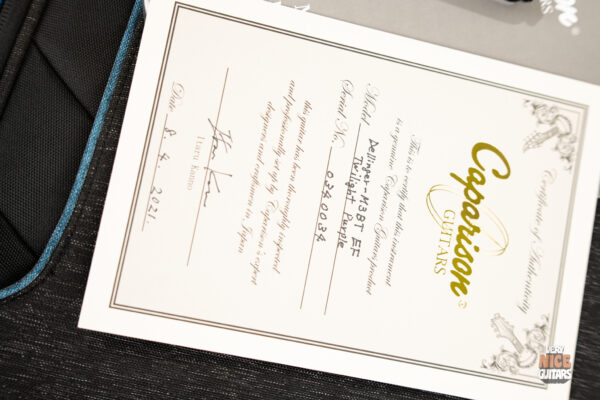 Certificate of Authenticity
Caparison®
GUITARS
This is to certify that this instrument
is a genuine Caparison Guitars product
Model Dellinger-M3BT EF
Twilight Purple
Serial No. 0340034
this guitar has been thoroughly inspected
and professionally set up by Caparison's expert
designers and craftsmen in Japan
Itaru Kanno
Date 8. 4. 2021
VERY
NICE
GUITARS